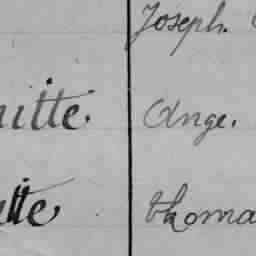 Joseph.
uitte. Ange.
tte thoma